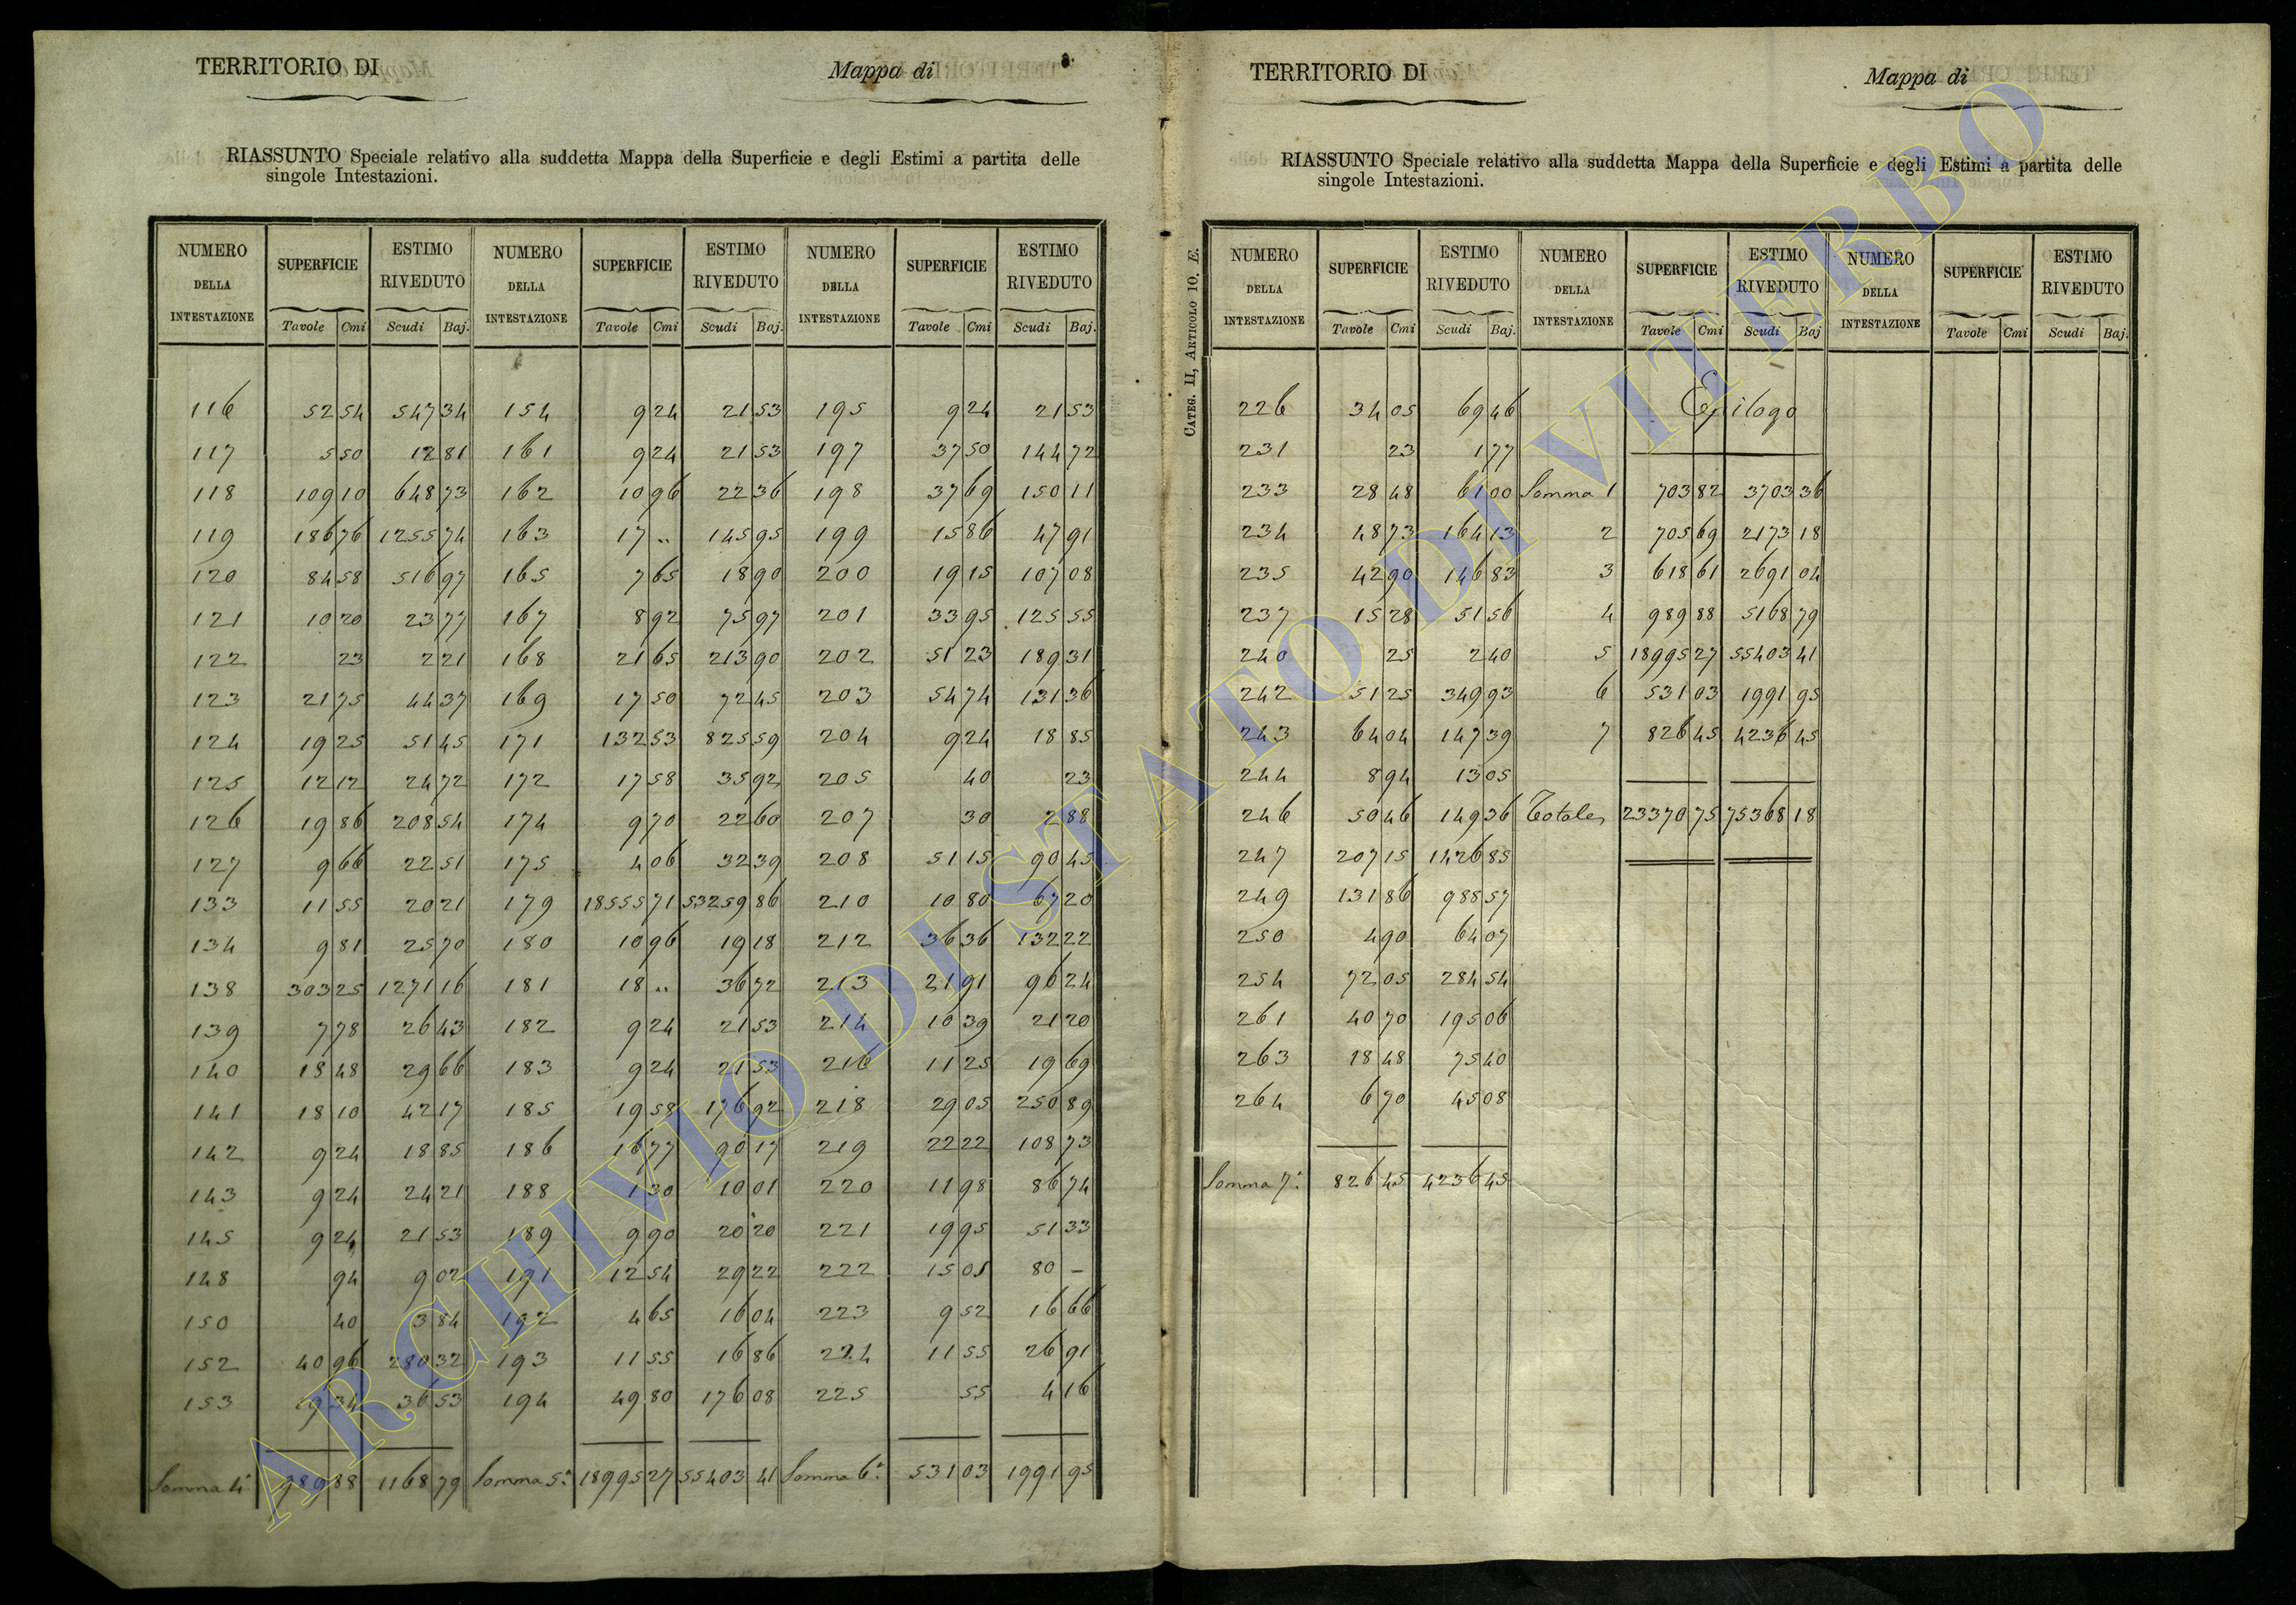 TERRITORIO DI Mappa di
RIASSUNTO Speciale relativo alla suddetta Mappa della Superficie e degli Estimi a partita delle
singole Intestazioni.
NUMERO DELLA INTESTAZIONE SUPERFICIE ESTIMO RIVEDUTO NUMERO DELLA INTESTAZIONE SUPERFICIE ESTIMO RIVEDUTO NUMERO DELLA INTESTAZIONE SUPERFICIE ESTIMO RIVEDUTO
Tavole Cmi Scudi Baj. Tavole Cmi Scudi Baj. Tavole Cmi Scudi Baj.
116 52 54 547 34 154 9 24 21 53 195 9 24 21 53
117 5 50 12 81 161 9 24 21 53 197 37 50 144 72
118 109 10 648 73 162 10 96 22 36 198 37 69 150 11
119 186 76 1255 74 163 17 .. 145 95 199 15 86 47 91
120 84 58 516 97 165 7 65 18 90 200 19 15 107 08
121 10 20 23 77 167 8 92 75 97 201 33 95 125 55
122 23 2 21 168 21 65 213 90 202 51 23 189 31
123 21 75 44 37 169 17 50 72 45 203 54 74 131 36
124 19 25 51 45 171 132 53 825 59 204 9 24 18 85
125 12 12 24 72 172 17 58 35 92 205 40 23
126 19 86 208 54 174 9 70 22 60 207 30 2 88
127 9 66 22 51 175 4 06 32 39 208 51 15 90 45
133 11 55 20 21 179 18555 71 53259 86 210 10 80 67 20
134 9 81 25 70 180 10 96 19 18 212 36 36 132 22
138 303 25 1271 16 181 18 .. 36 72 213 21 91 96 24
139 7 78 26 43 182 9 24 21 53 214 10 39 21 20
140 18 48 29 66 183 9 24 21 53 216 11 25 19 69
141 18 10 42 17 185 19 58 176 92 218 29 05 250 89
142 9 24 18 85 186 16 77 90 17 219 22 22 108 73
143 9 24 24 21 188 1 30 10 01 220 11 98 86 74
145 9 24 21 53 189 9 90 20 20 221 19 95 51 33
148 94 9 02 191 12 54 29 22 222 15 05 80 –
150 40 3 84 192 4 65 16 04 223 9 52 16 66
152 40 96 280 32 193 11 55 16 86 224 11 55 26 91
153 19 34 36 53 194 49 80 176 08 225 55 4 16
Somma 4ª 989 88 1168 79 Somma 5ª 18995 27 55403 41 Somma 6ª 531 03 1991 95
CATEG. II, ARTICOLO 10. E.
TERRITORIO DI Mappa di
RIASSUNTO Speciale relativo alla suddetta Mappa della Superficie e degli Estimi a partita delle
singole Intestazioni.
NUMERO DELLA INTESTAZIONE SUPERFICIE ESTIMO RIVEDUTO NUMERO DELLA INTESTAZIONE SUPERFICIE ESTIMO RIVEDUTO NUMERO DELLA INTESTAZIONE SUPERFICIE ESTIMO RIVEDUTO
Tavole Cmi Scudi Baj. Tavole Cmi Scudi Baj Tavole Cmi Scudi Baj.
226 34 05 69 46 Epilogo
231 23 1 77
233 28 48 61 00 Somma 1 703 82 3703 36
234 48 73 164 13 2 705 69 2173 18
235 42 90 146 83 3 618 61 2691 04
237 15 28 51 56 4 989 88 5168 79
240 25 2 40 5 18995 27 55403 41
242 51 25 349 93 6 531 03 1991 95
243 64 04 147 39 7 826 45 4236 45
244 8 94 13 05
246 50 46 149 36 Totale 23370 75 75368 18
247 207 15 1426 85
249 131 86 988 57
250 4 90 64 07
254 72 05 284 54
261 40 70 195 06
263 18 48 75 40
264 6 70 45 08
Somma 7ª 826 45 4236 45
ARCHIVIO DI STATO DI VITERBO